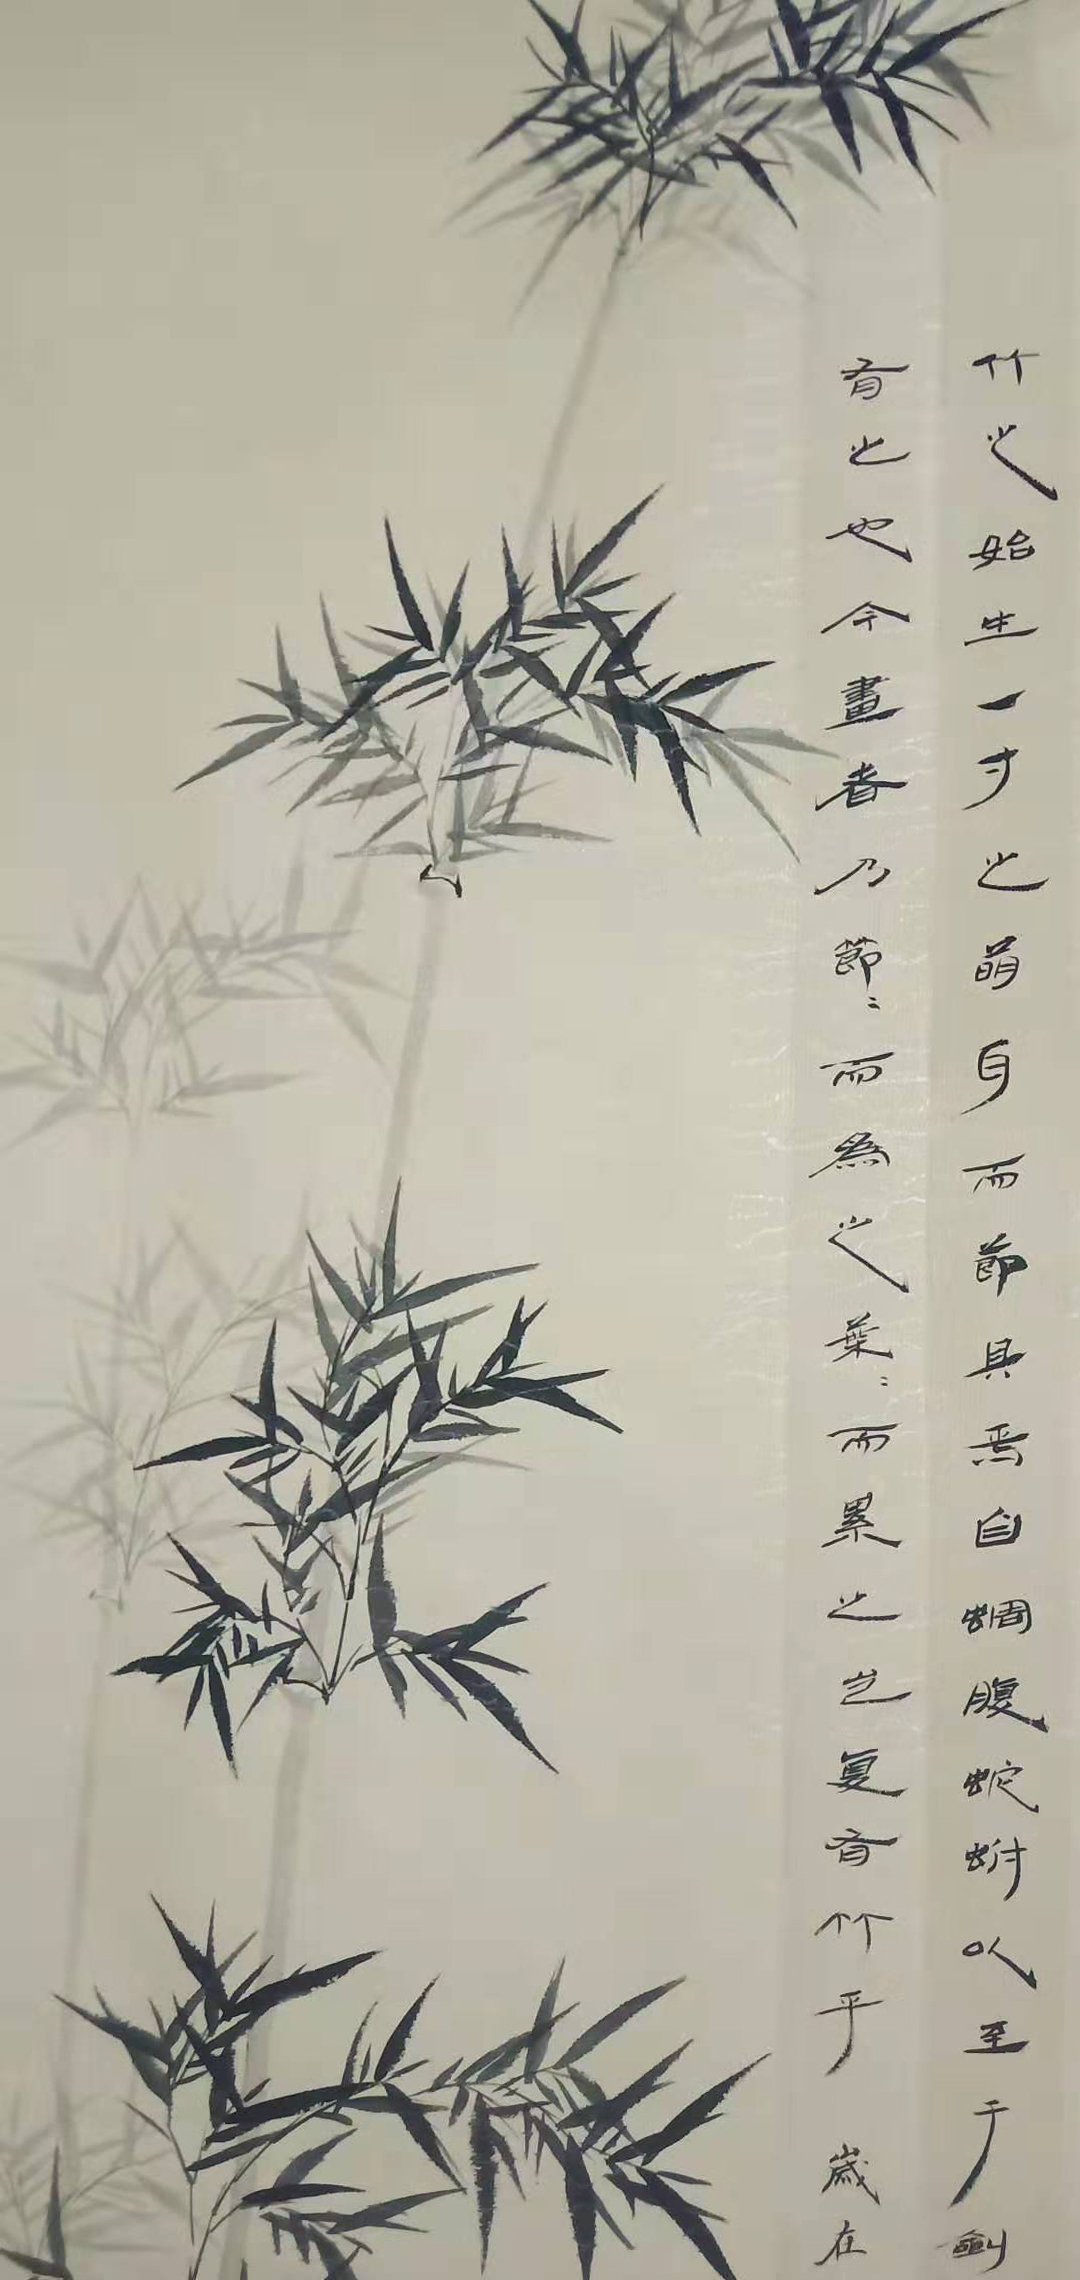 竹之始生一寸之萌耳而節具焉自蜩腹蛇蚹以至于劍
有之也今畫者乃節〻而為之葉〻而累之豈復有竹乎　歲在